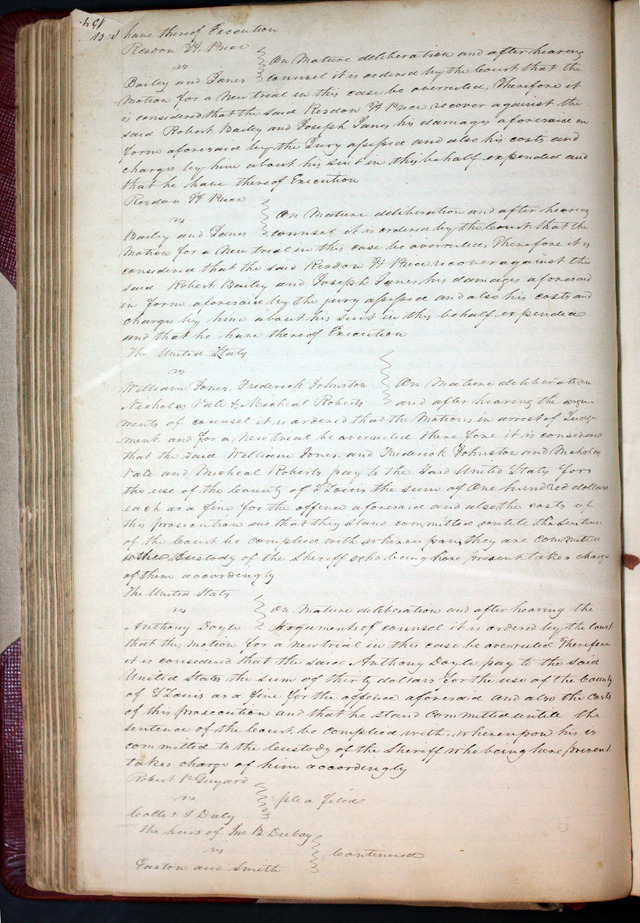 have thereof Execution
Reedon H. Price
vs
Bailey and Janes
On Mature deliberation and after hearing
counsel it is ordered by the Court that the
Motion for a New trial in this case be overruled, Therefore it
is considered that the said Reedon H Price recover against the
said Robert Bailey and Joseph Janes his damages aforesaid in
form aforesaid by the Jury assessed and also his costs and
charges by him about his suit in this behalf expended and
that he have thereof Execution
Reedon H Price
vs
Bailey and Janes
On Mature deliberation and after hearing
counsel it is ordered by the Court that the
Motion for a New trial in this case be overruled, Therefore it is
considered that the said Reedon H Price recover against the
said Robert Bailey and Joseph Janes his damages aforesaid
in form aforesaid by the jury assessed and also his costs and
charge by him about his suit in this behalf expended
and that he have thereof Execution
The United States
vs
William Jones, Frederick Johnston
Nicholas Vale & Micheal Roberts
On Mature deliberation
and after hearing the argu
ments of counsel it is ordered that the Motions in arrest of Judge
ment and for a New treal be overruled There fore it is considered
that the said William Jones, and Frederick Johnston and Nicholas
Vale and Micheal Roberts pay to the said United States for
the use of the County of S Louis the sum of One hundred dollars
each as a fine for the offence aforesaid and also the costs of
this prosecution and that they stand committed untile the sentence
of the Court be complied with whereupon they are committed
to the Custody of the Sheriff who being here present takes charge
of them accordingly
The United States
vs
Anthony Doyle
On Mature deliberation and after hearing the
Arguments of counsel it is ordered by the Court
that the Motion for a new trial in this case be overruled Therefore
it is considered that the said Anthony Doyle pay to the said
United States the sum of thirty dollars for the use of the County
of S Louis as a fine for the offence aforesaid and also the Costs
of this prosecution and that he stand Committed untile the
sentence of the Court be complied with, whereupon he is
committed to the Custody of the Sheriff who being here present
takes charge of him accordingly
Robert P Guyard
vs
plea filed
The heirs of Jno B Dubay
vs
Easton and Smith
Continued